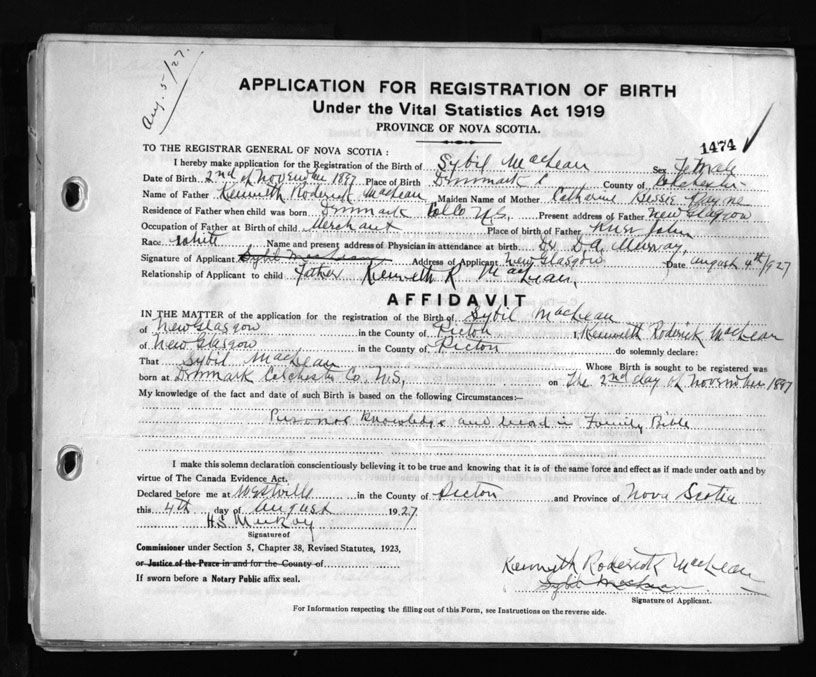 Aug. 5/27.
APPLICATION FOR REGISTRATION OF BIRTH
Under the Vital Statistics Act 1919
PROVINCE OF NOVA SCOTIA.
1474
TO THE REGISTRAR GENERAL OF NOVA SCOTIA:
I hereby make application for the Registration of the Birth of Sybil MacLean Sex Female
Date of Birth 2nd of November 1897 Place of Birth County of Colchester
Name of Father Kenneth Roderick MacLean Maiden Name of Mother Catherine Bessie
Residence of Father when child was born Colco N.S. Present address of Father New Glasgow
Occupation of Father at Birth of child Merchant Place of birth of Father River John
Race White Name and present address of Physician in attendance at birth Dr. D.A. Murray
Signature of Applicant Sybil MacLean Address of Applicant New Glasgow Date August 4th/1927
Relationship of Applicant to child Father Kenneth R. MacLean
AFFIDAVIT
IN THE MATTER of the application for the registration of the Birth of Sybil MacLean
of New Glasgow in the County of Pictou I, Kenneth Roderick MacLean
of New Glasgow in the County of, Pictou do solemnly declare:
That Sybil MacLean Whose Birth is sought to be registered was
born at Colchester Co. N.S, on The 2nd day of November 1897
My knowledge of the fact and date of such Birth is based on the following Circumstances:—
Personal knowledge and record in Family Bible
I make this solemn declaration conscientiously believing it to be true and knowing that it is of the same force and effect as if made under oath and by
virtue of The Canada Evidence Act.
Declared before me at Westville in the County of Pictou and Province of Nova Scotia
this 4th day of August 1927
H.S. McKay
Signature of
Commissioner under Section 5, Chapter 38, Revised Statutes, 1923,
or Justice of the Peace in and for the County of
If sworn before a Notary Public affix seal.
Kenneth Roderick MacLean
Sybil MacLean
Signature of Applicant.
For Information respecting the filling out of this Form, see Instructions on the reverse side.